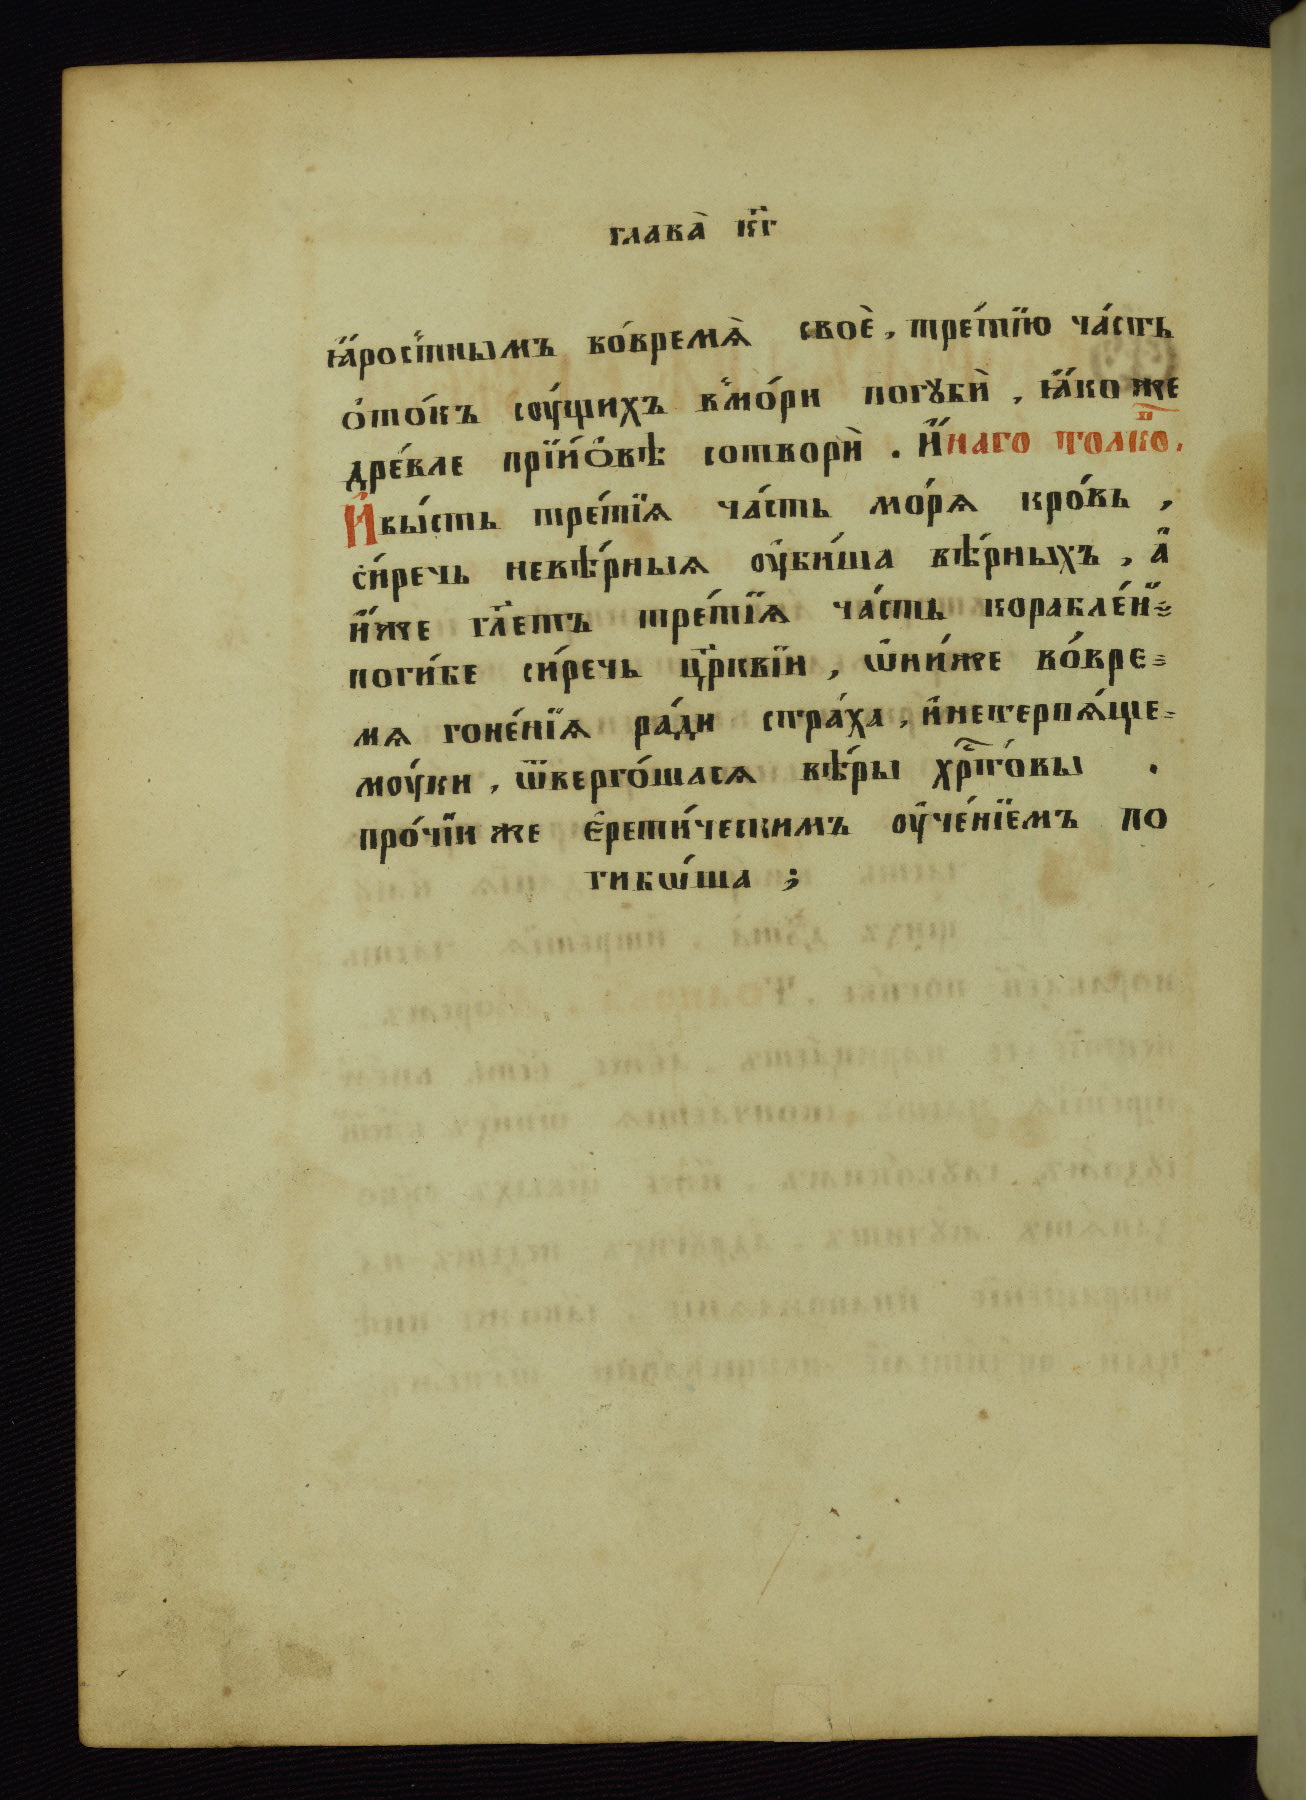 глава̀ к҃г
ꙗ҆́ростнымъ во́времѧ̀ своѐ, тре́тїю ча́сть
ѻ҆то́къ сꙋ́щихъ в̾мо́ри погꙋбѝ, ꙗ҆́коже
дре́вле прїи́ѻ҆вѣ сотворѝ. И҆́наго толко̑.
И҆бы́сть тре́тїѧ ча́сть мо́рѧ кро́вь,
си́речь невѣ́рныѧ оу҆би́ша вѣ́рныхъ, а҆̀
и҆́же гл҃етъ тре́тїѧ ча́сть корабле́й
поги́бе си́речь цр҃квїи, ѿни́же во́вре-
мѧ гоне́нїѧ ра́ди стра́ха, и҆нетерпѧ́ще-
моу́ки, ѿверго́шасѧ вѣ́ры хрⷭ҇то́вы .
про́чїи же є҆рети́ческимъ оу҆че́нїемъ по
гибѡ́ша ;